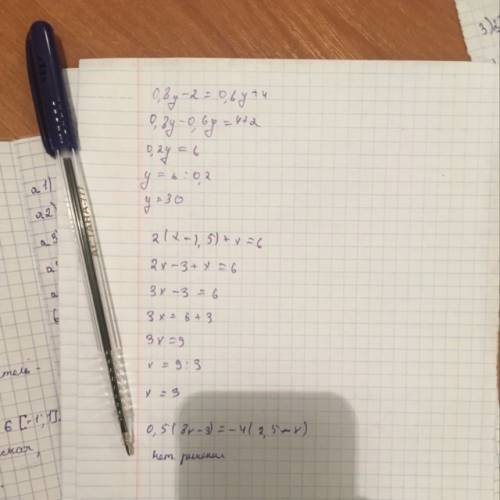 0,8y-2=0,6y+4
0,8y-0,6y=4+2
0,2y=6
y=6:0,2
y=30
2(x-1,5)+x=6
2x-3+x=6
3x-3=6
3x=6+3
3x=9
x=9:3
x=3
0,5(8x-3)=-4(2,5-x)
нет решения
а1)
а2)
6 [-1;1]
3)